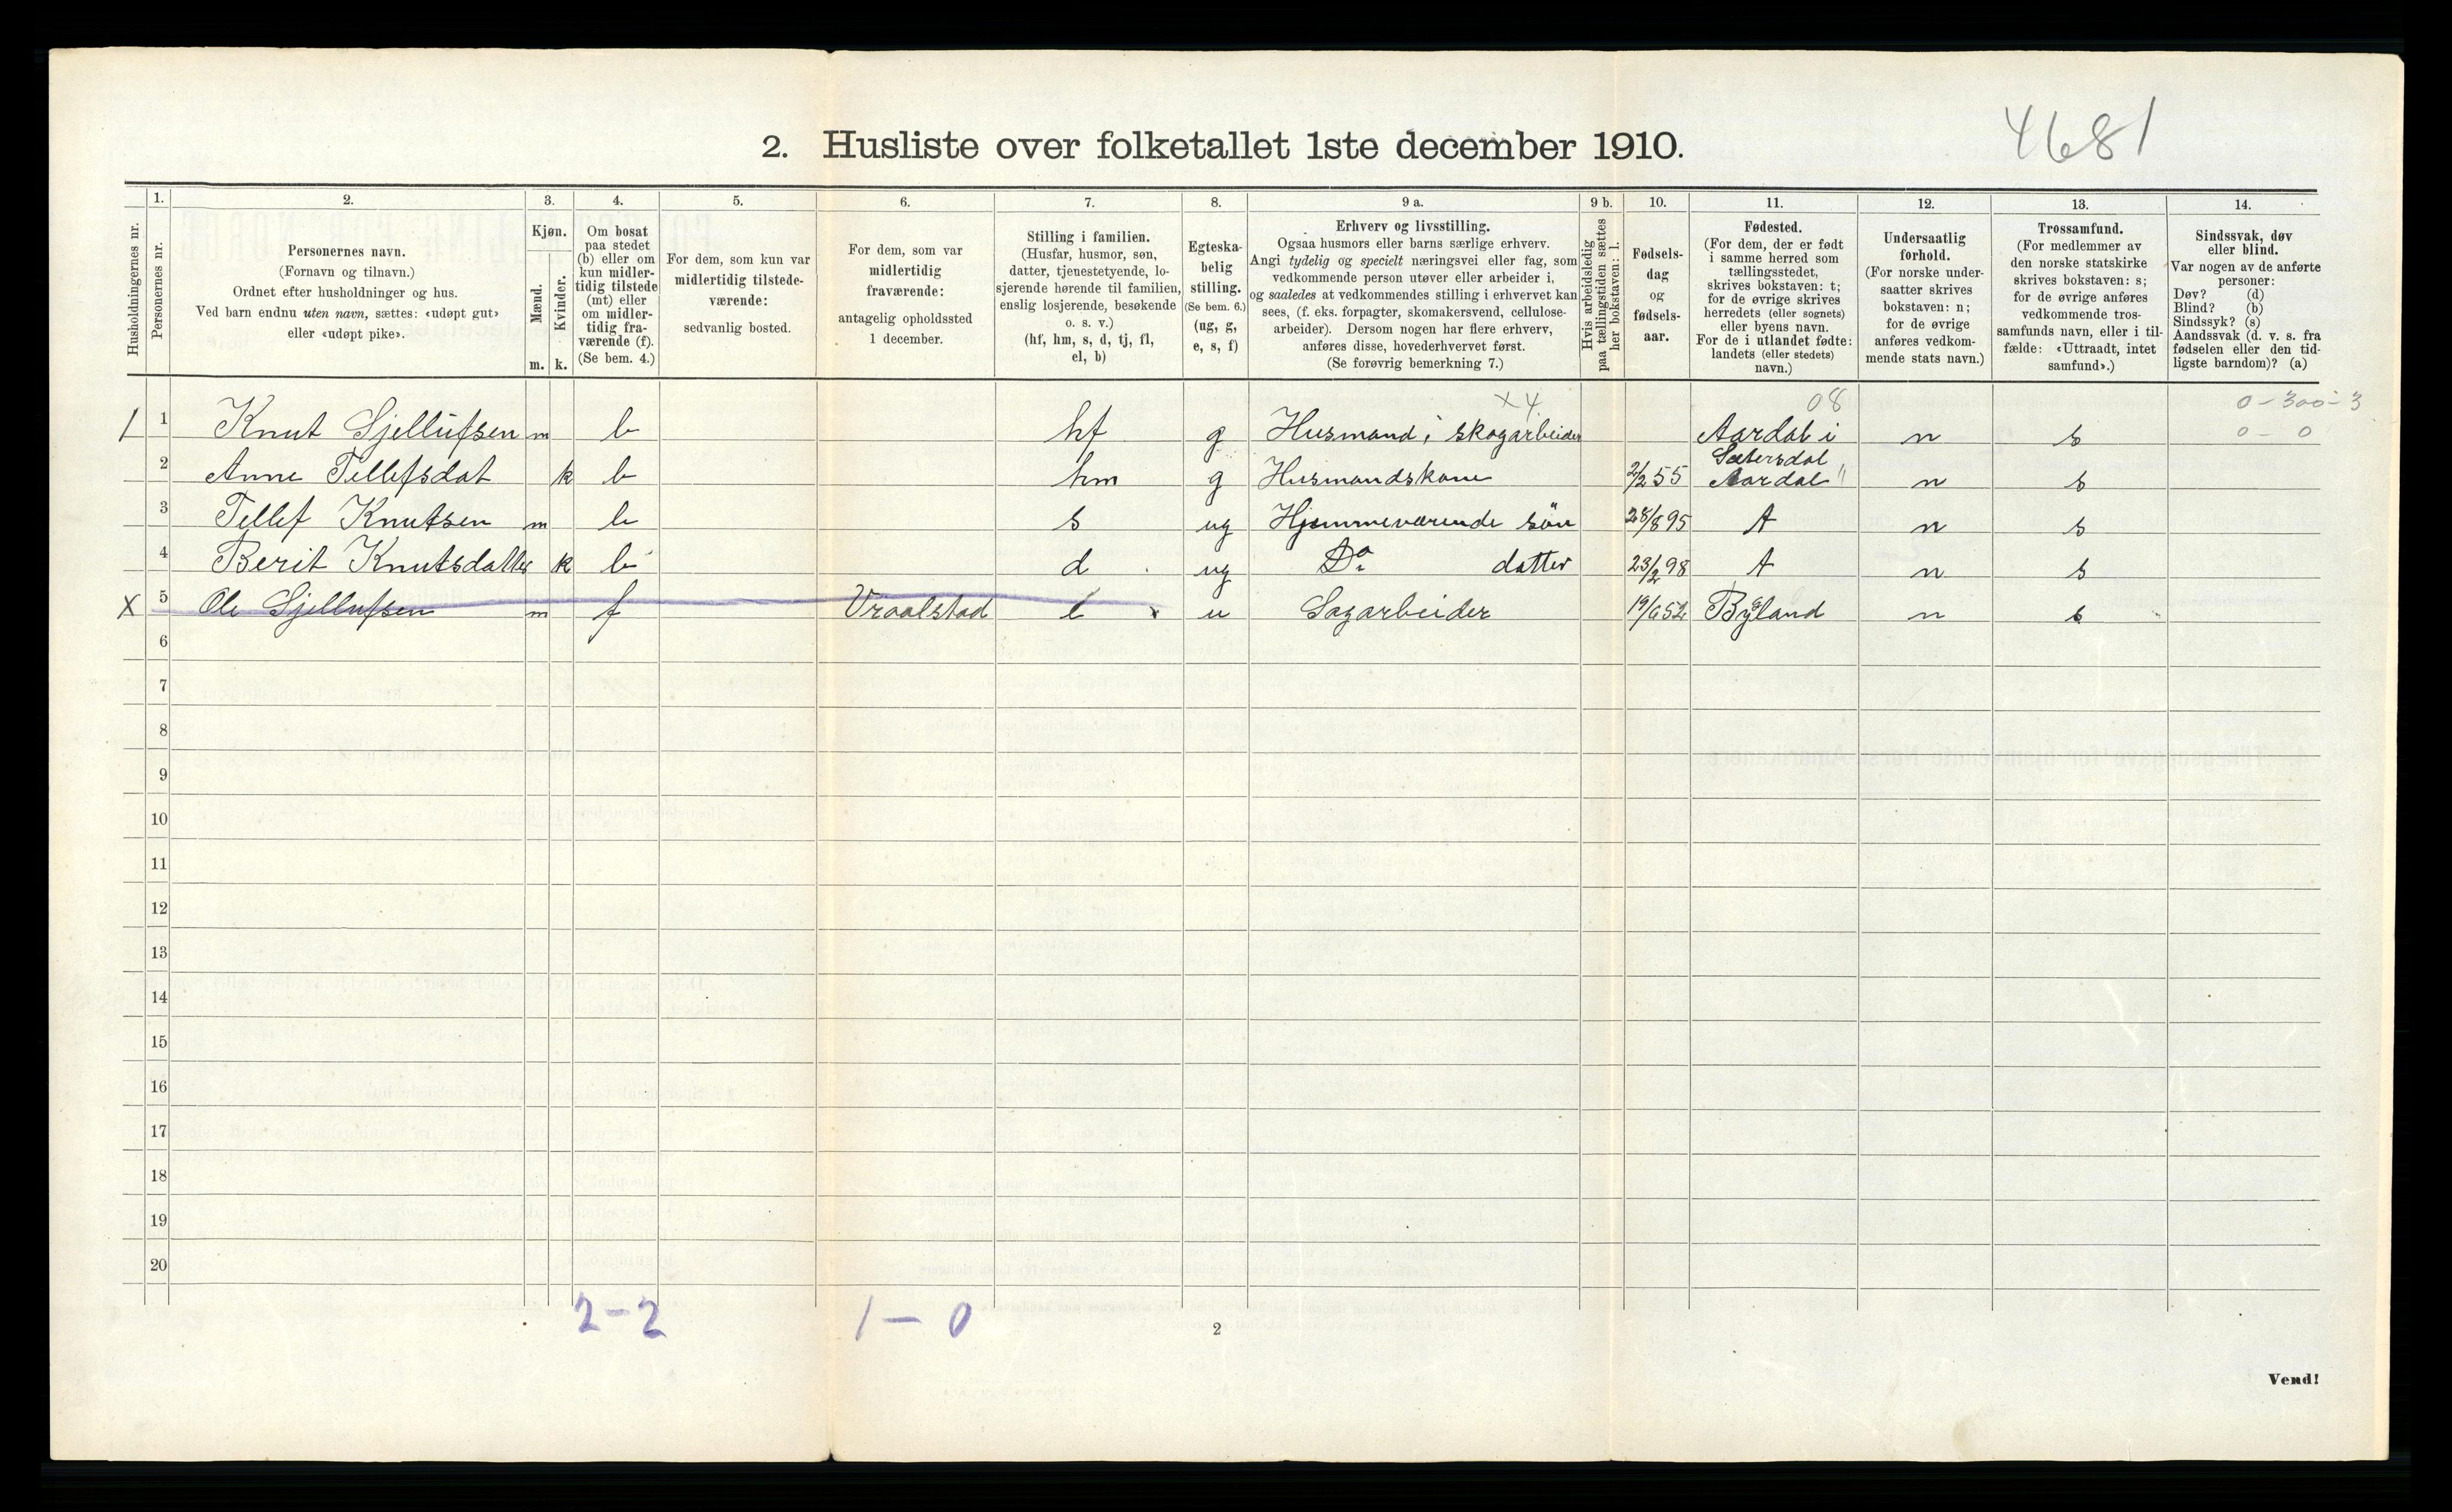 4681
2. Husliste over folketallet 1ste december 1910.
Husholdningernes nr.
1.
Personernes nr.
2.
Personernes navn.
(Fornavn og tilnavn.)
Ordnet efter husholdninger og hus.
Ved barn endnu uten navn, sættes: «udøpt gut»
eller «udøpt pike».
3.
Kjøn.
Mænd.
Kvinder.
m. k.
4.
Om bosat
paa stedet
(b) eller om
kun midler-
tidig tilstede
(mt) eller
om midler-
tidig fra-
værende (f).
(Se bem. 4.)
5.
For dem, som kun var
midlertidig tilstede-
værende:
sedvanlig bosted.
6.
For dem, som var
midlertidig
fraværende:
antagelig opholdssted
1 december.
7.
Stilling i familien.
(Husfar, husmor, søn,
datter, tjenestetyende, lo-
sjerende hørende til familien,
enslig losjerende, besøkende
o. s. v.)
(hf, hm, s, d, tj, fl,
el, b)
8.
Egteska-
belig
stilling.
(Se bem. 6.)
(ug, g,
e, s, f)
9 a.
Erhverv og livsstilling.
Ogsaa husmors eller barns særlige erhverv.
Angi tydelig og specielt næringsvei eller fag, som
vedkommende person utøver eller arbeider i,
og saaledes at vedkommendes stilling i erhvervet kan
sees, (f. eks. forpagter, skomakersvend, cellulose-
arbeider). Dersom nogen har flere erhverv,
anføres disse, hovederhvervet først.
(Se forøvrig bemerkning 7.)
9 b.
Hvis arbeidsledig
paa tællingstiden sættes
her bokstaven: l.
10.
Fødsels-
dag
og
fødsels-
aar.
11.
Fødested.
(For dem, der er født
i samme herred som
tællingsstedet,
skrives bokstaven: t;
for de øvrige skrives
herredets (eller sognets)
eller byens navn.
For de i utlandet fødte:
landets (eller stedets)
navn.)
12.
Undersaatlig
forhold.
(For norske under-
saatter skrives
bokstaven: n;
for de øvrige
anføres vedkom-
mende stats navn.)
13.
Trossamfund.
(For medlemmer av
den norske statskirke
skrives bokstaven: s;
for de øvrige anføres
vedkommende tros-
samfunds navn, eller i til-
fælde: «Uttraadt, intet
samfund».)
14.
Sindssvak, døv
eller blind.
Var nogen av de anførte
personer:
Døv? (d)
Blind? (b)
Sindssyk? (s)
Aandssvak (d. v. s. fra
fødselen eller den tid-
ligste barndom)? (a)
x 4 08 0-300-3
1 1 Knut Gjellufsen m b hf g Husmand i skogarbeider Aardal i n s 0-0
Sætersdal
2 Anne Tellefsdat k b hm g Husmandskone 2/2 55 Aardal " n s
3 Tellef Knutsen m b s ug Hjemmeværende søn 28/8 95 A n s
4 Berit Knutsdatter k b d ug Do datter 23/2 98 A n s
X 5 Ole Gjellufsen m f Vraalstad l x u Sagarbeider 19/6 52 Bygland n s
6
7
8
9
10
11
12
13
14
15
16
17
18
19
20
2-2 1-0
2
Vend!